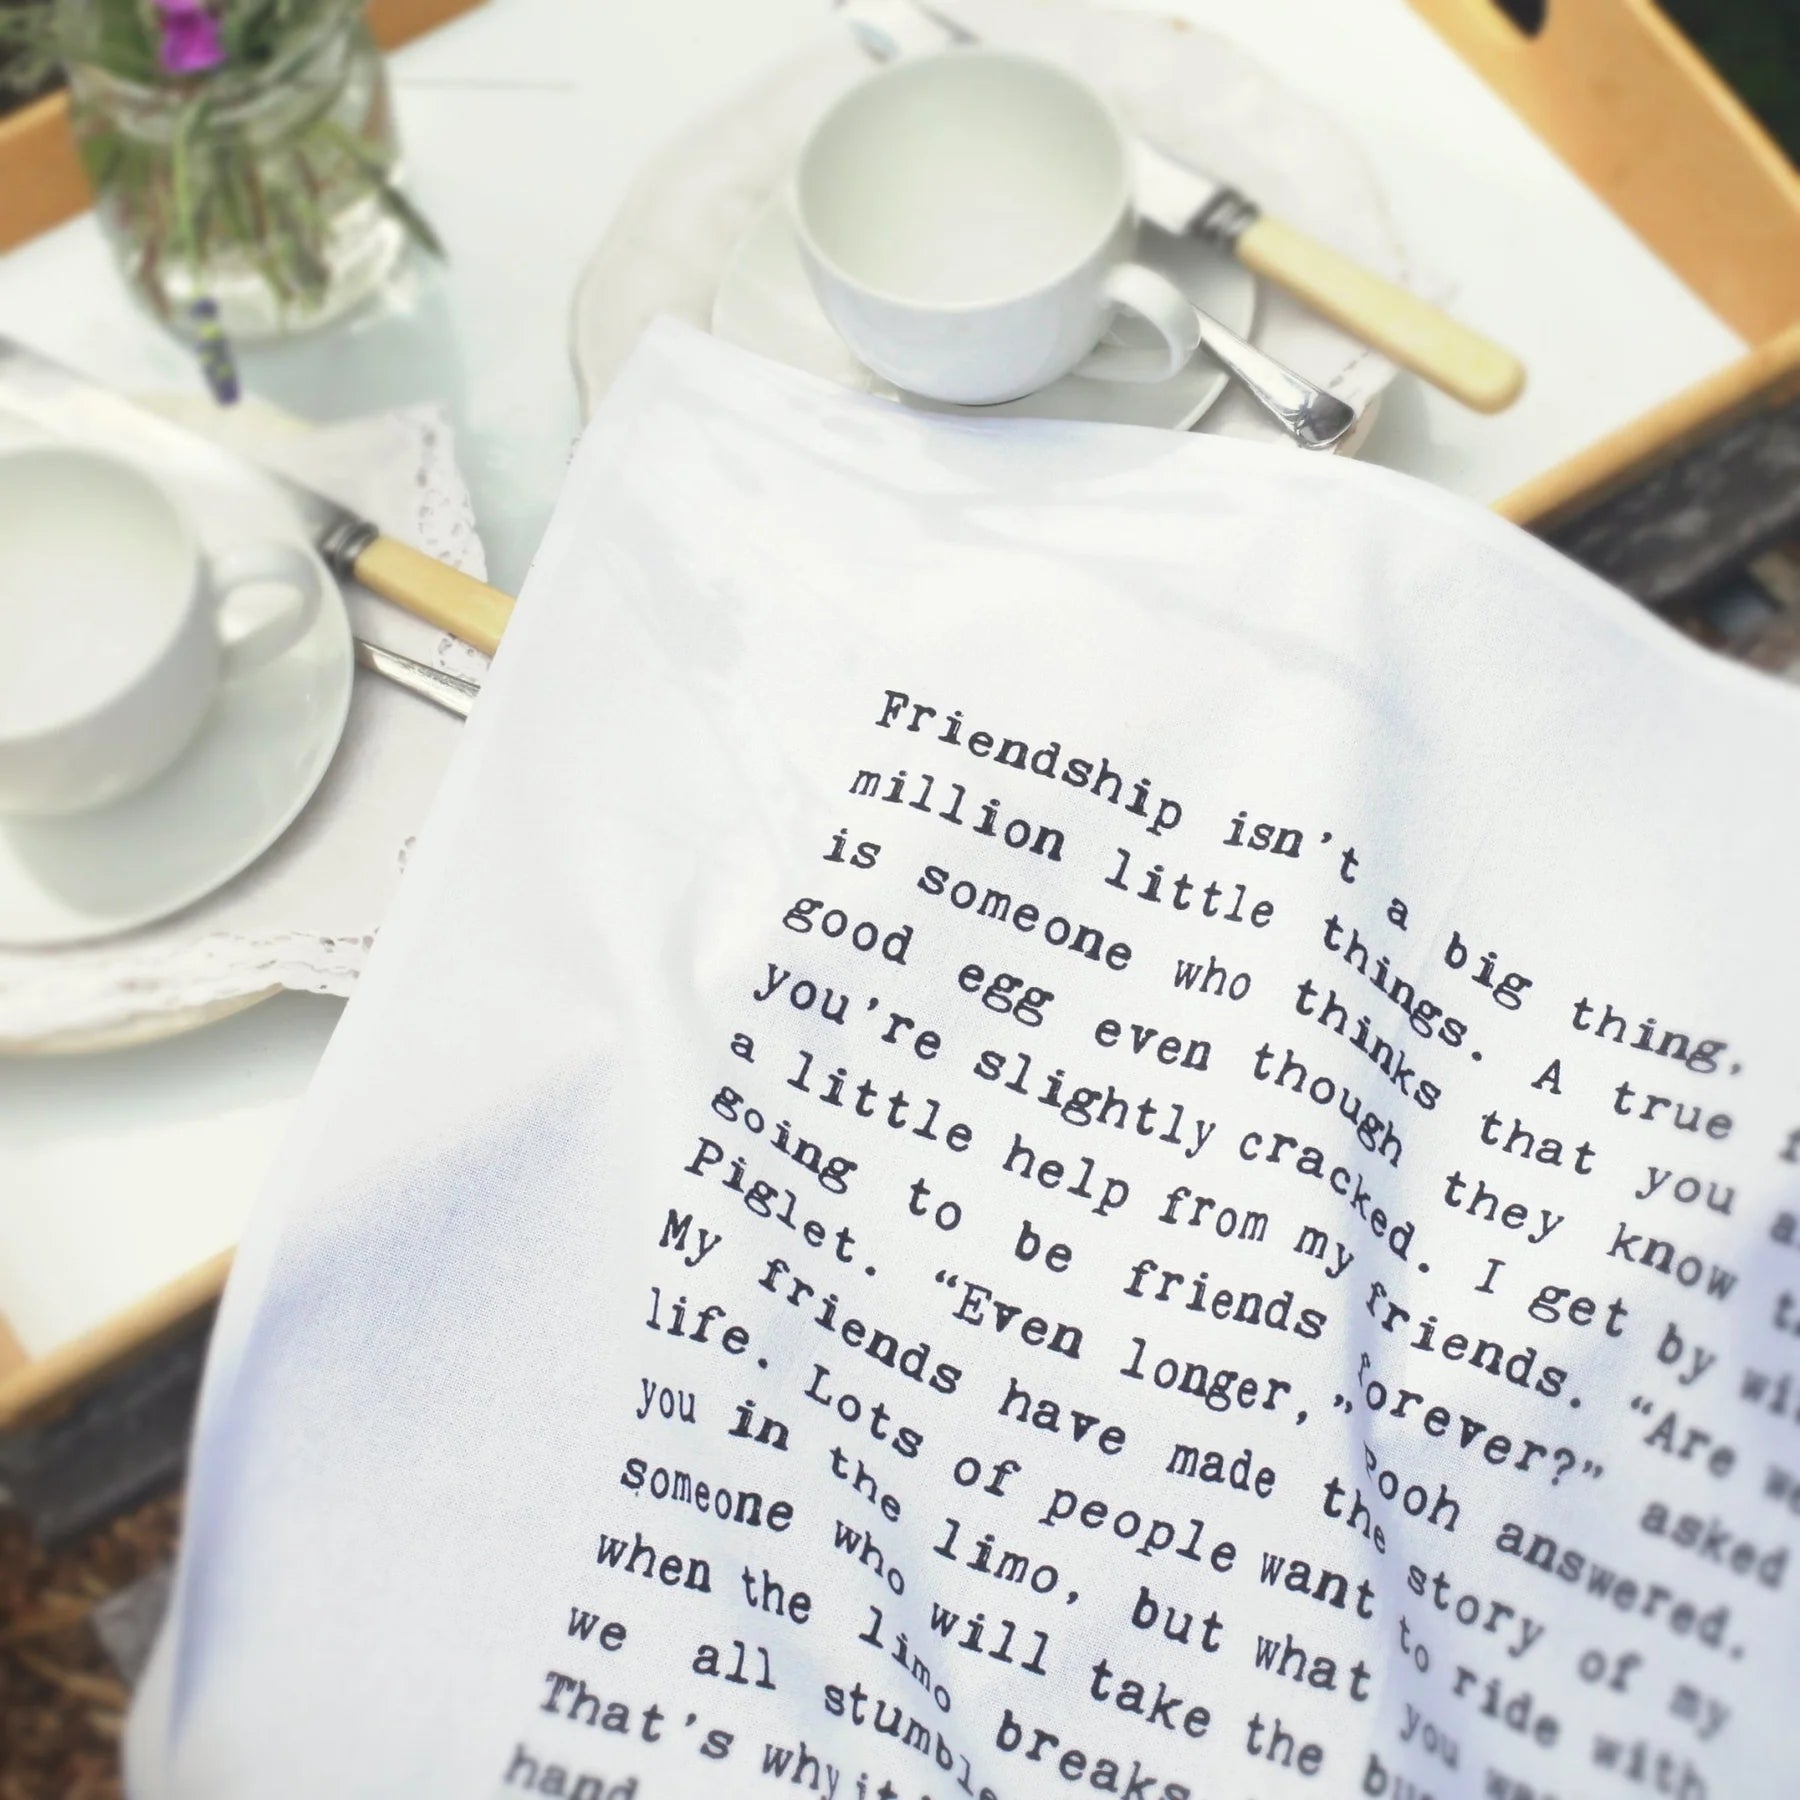 Friendship isn't a big thing,
million little things. A true
is someone who thinks that you
good egg even though they know
you're slightly cracked. I get by
a little help from my friends. "Are we
going to be friends forever?" asked
Piglet. "Even longer," Pooh answered.
My friends have made the story of my
life. Lots of people want to ride with
you in the limo, but what you
someone who will take the
when the limo breaks
we all stumble
That's why it
hand